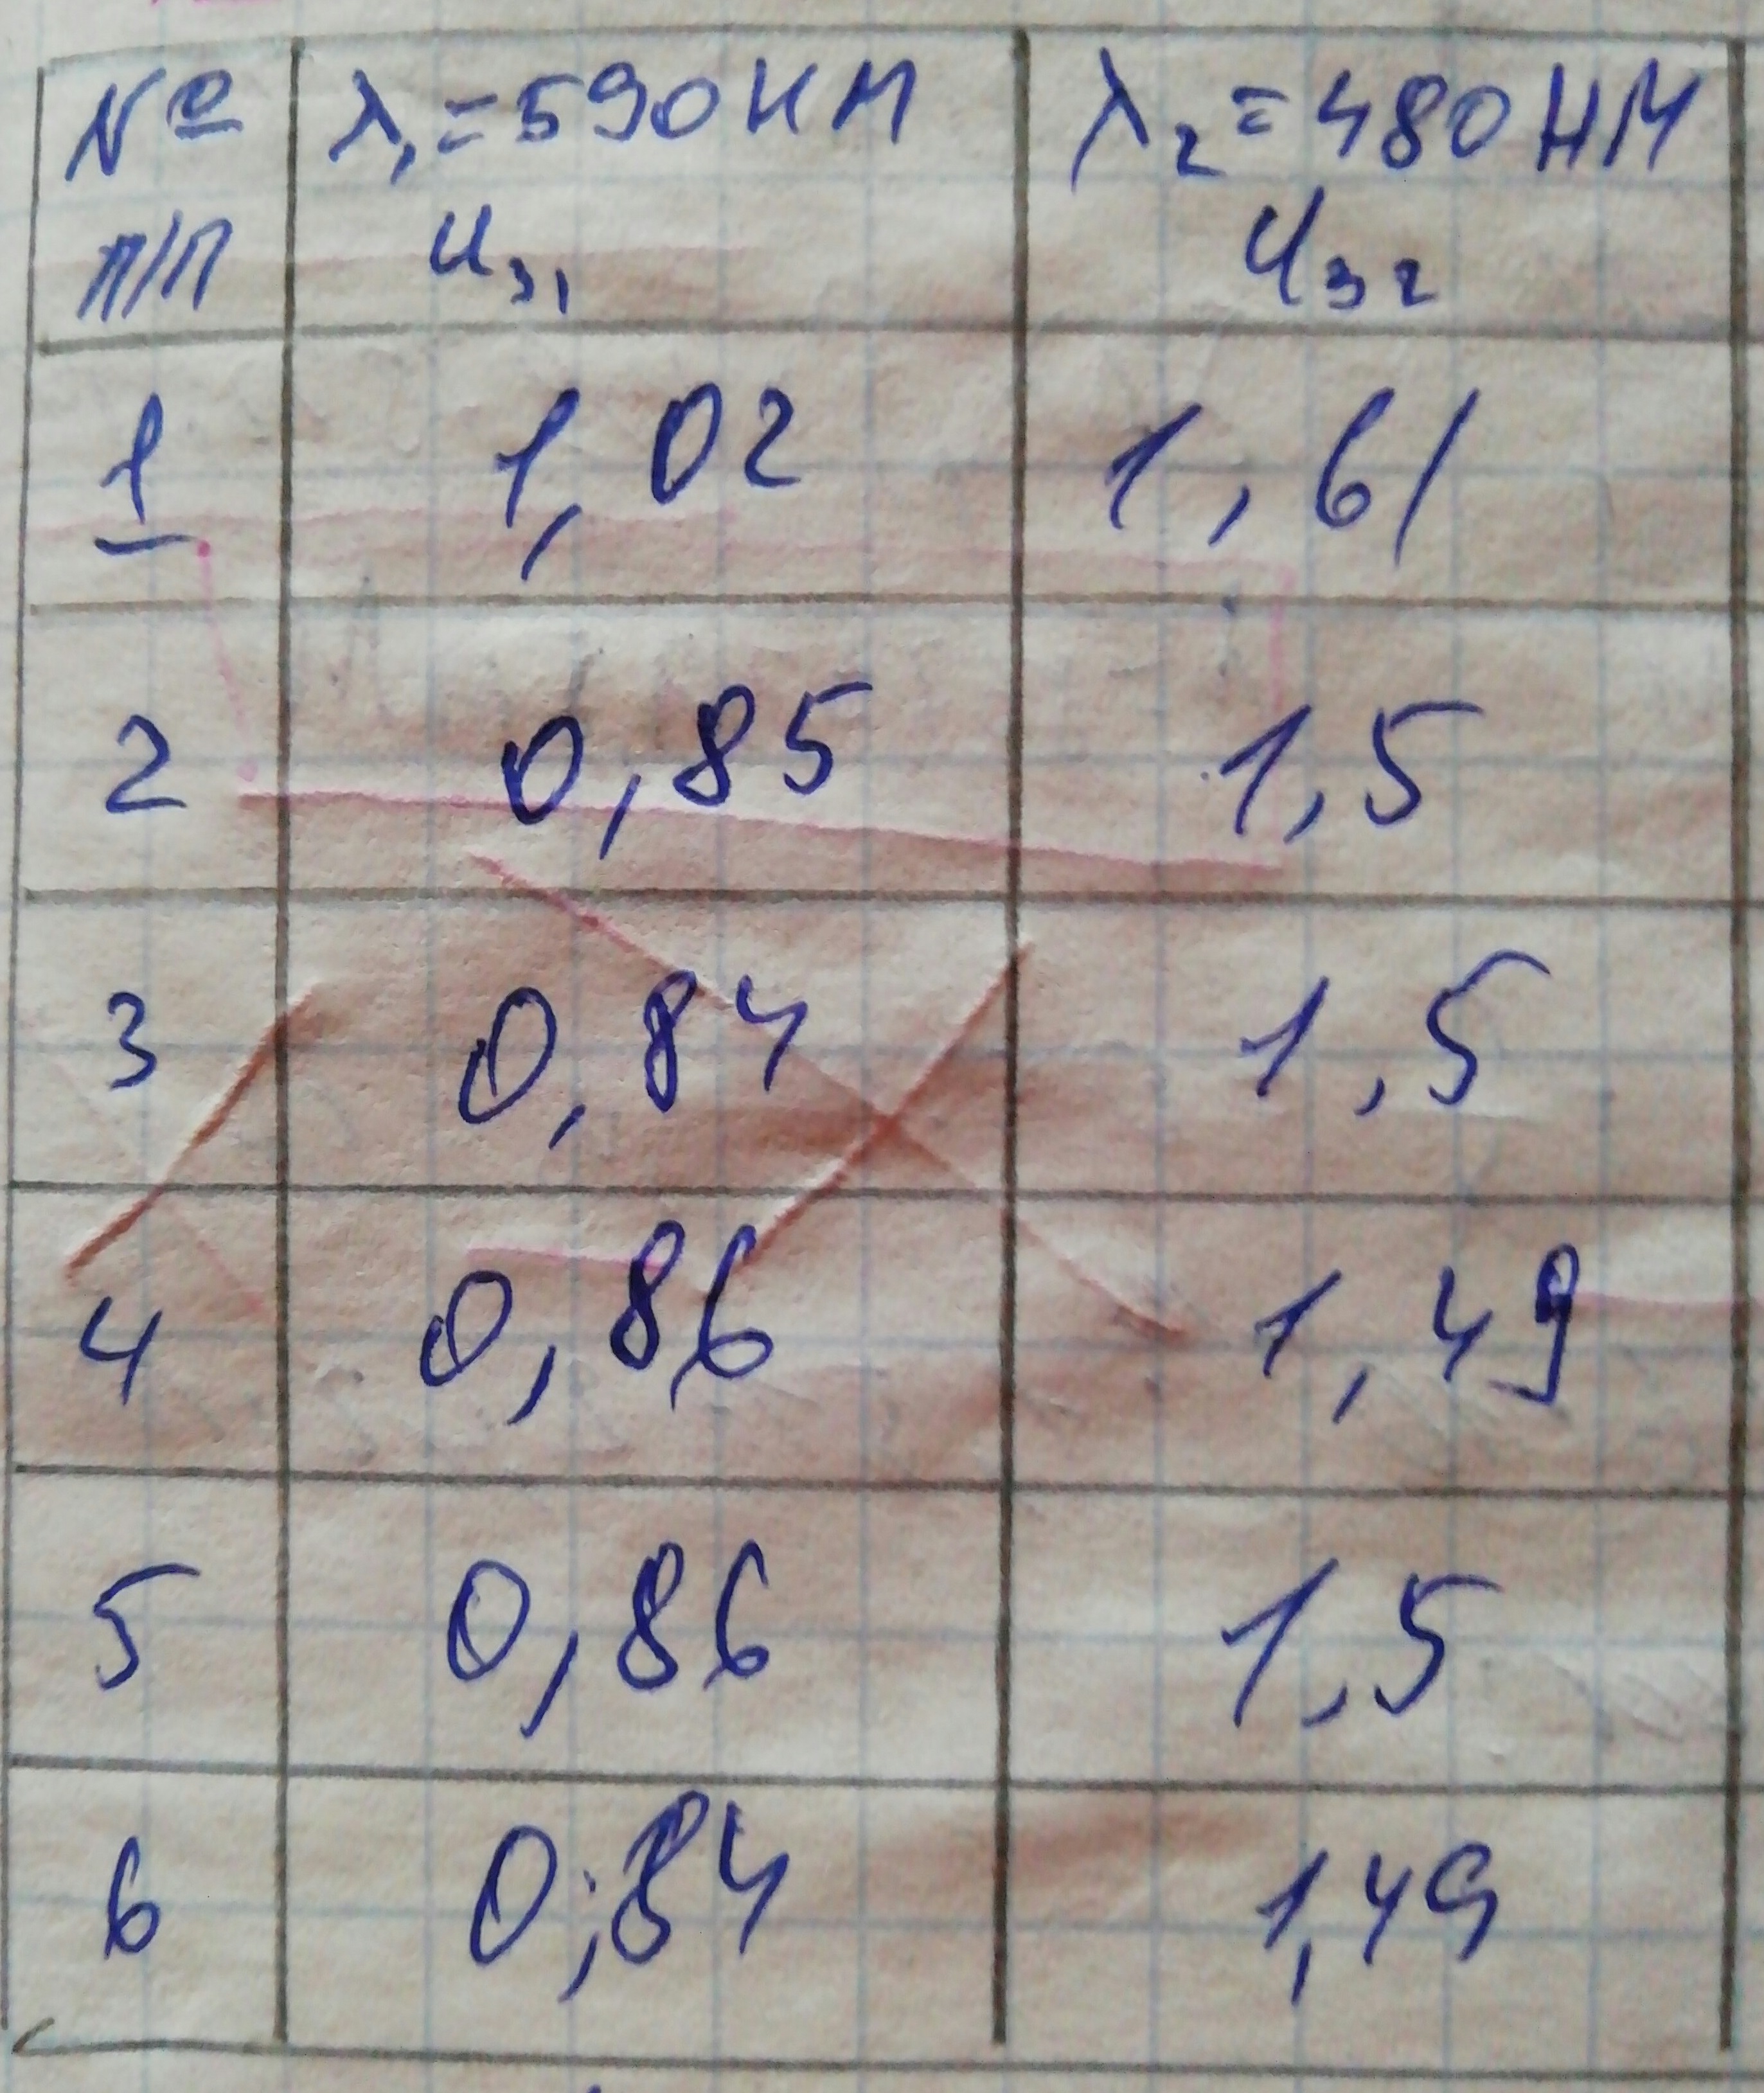 № λ₁=590нм λ₂=480нм
п/п U₃₁ U₃₂
1 1,02 1,61
2 0,85 1,5
3 0,84 1,5
4 0,86 1,49
5 0,86 1,5
6 0,84 1,49